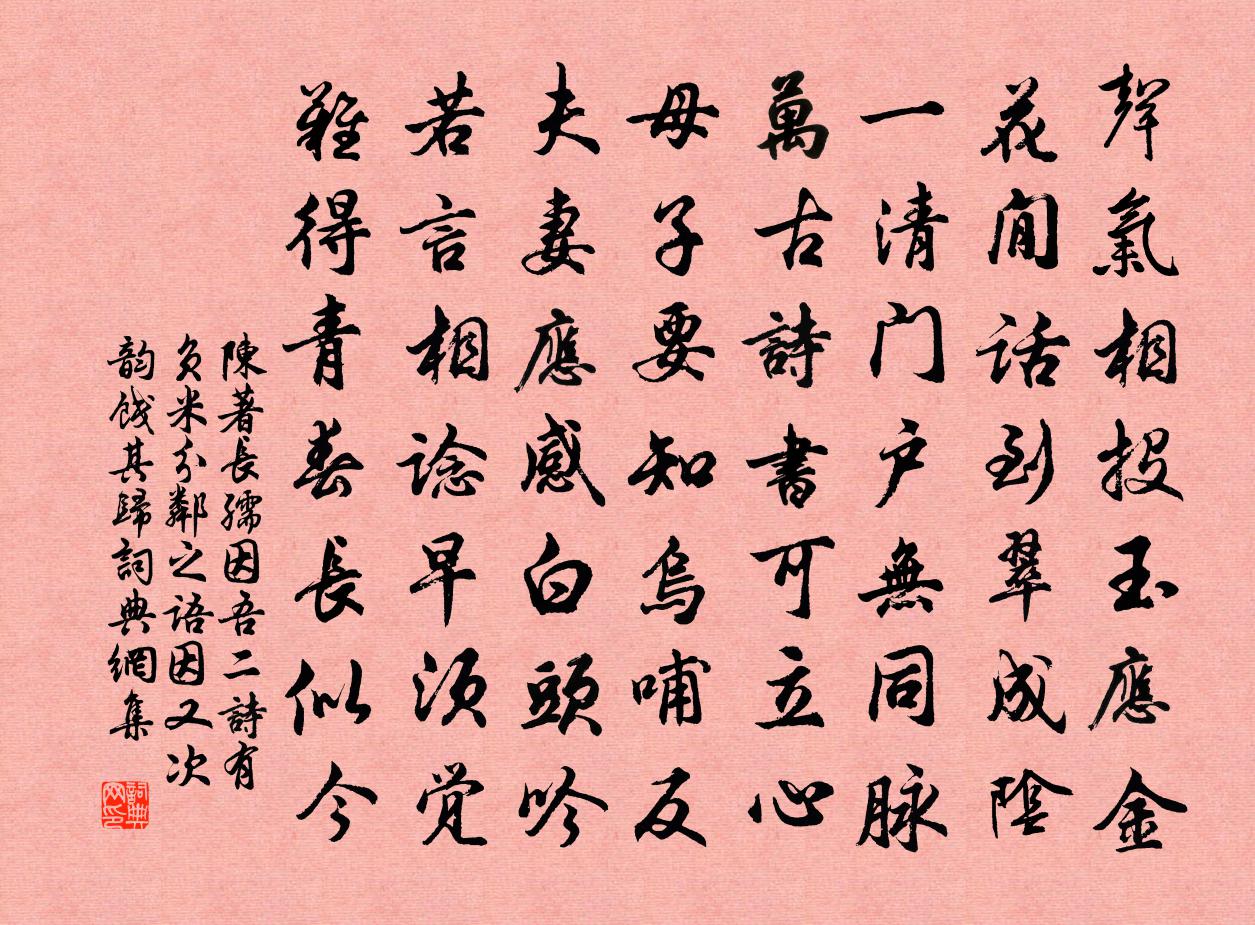 聲氣相投玉應金
花間話到翠成陰
一清門户無同脉
萬古詩書可立心
母子要知烏哺反
夫妻應感白頭吟
若言相諗早須覺
難得青春長似今
陳著長孺因吾二詩有
負米分鄰之語因又次
韵餞其歸詞典網集
詞典網印